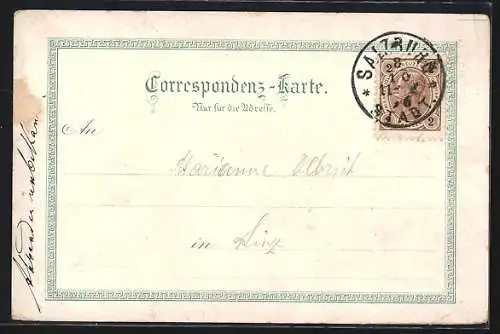 Correspondenz-Karte.
Nur für die Adresse.
SALZBURG
28
10
11-
96
* STADT *
2
An
Marianne Albrit
in Linz